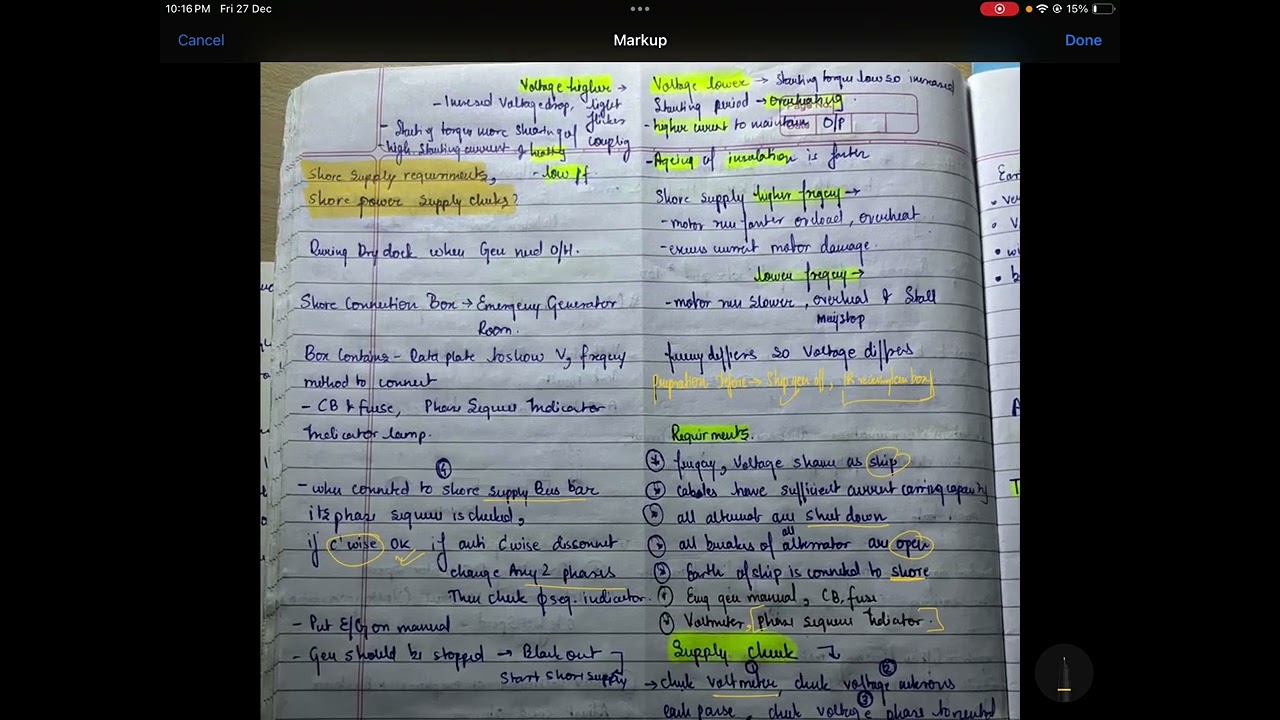 10:16 PM Fri 27 Dec
15%
Cancel
Markup
Done
Voltage higher →
- Incresd Valtagedrop, light flikes
- Starting torque more shearing of coupling
- high starting current & heating
- low pf
Shore supply requirments,
Shore power supply checks?
During Dry dock when Gen need O/H.
Shore Connection Box → Emergency Generator
Room.
Box Contains - Data plate to show V, freqcy
method to connect
- CB & fuse, Phase Sequence Indicator
Indicator lamp.
④
- when connected to shore supply Bus bar
its phase sequence is checked,
if c'wise OK if anti C'wise dissonnet
change Any 2 phases
Then check ϕ seq. indicator.
- Put E/G on manual
- Gen should be stopped → Blackout
Start shore supply
Voltage lower → Starting torque low so increased
Starting period → overheating
- higher current to maintain O/P
- Ageing of insulation is faster
Shore supply higher freqcy →
- motor run faster overload, overheat
- excess current motor damage.
lower freqcy →
- motor run slower, overheat & Stall
may stop
differs so Voltage differs
Prepration before → Ship gen off,
Requirments.
freqcy, Voltage shame as ship
cables have sufficient current carring capacity
all alternators are shut down
all breakers of all alternator are open
Earth of ship is connected to shore
Emg gen manual, CB, fuse
Voltmeter, phase sequence Indicator.
Supply check ↓
① ②
→ check voltmeter, check voltage
③
each , check voltage phase to neutral